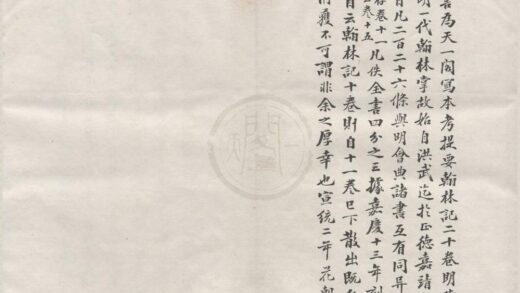 為天一閣寫本考提要翰林記二十卷明
明一代翰林掌故始自洪武迄於正德嘉靖
目凡二百二十六條與明會典諸書互有同異
卷十一凡佚全書四分之三據嘉慶十三年
卷十五
目云翰林記十卷則自十一卷已下散出既
獲不可謂非余之厚幸也宣統二年花朝